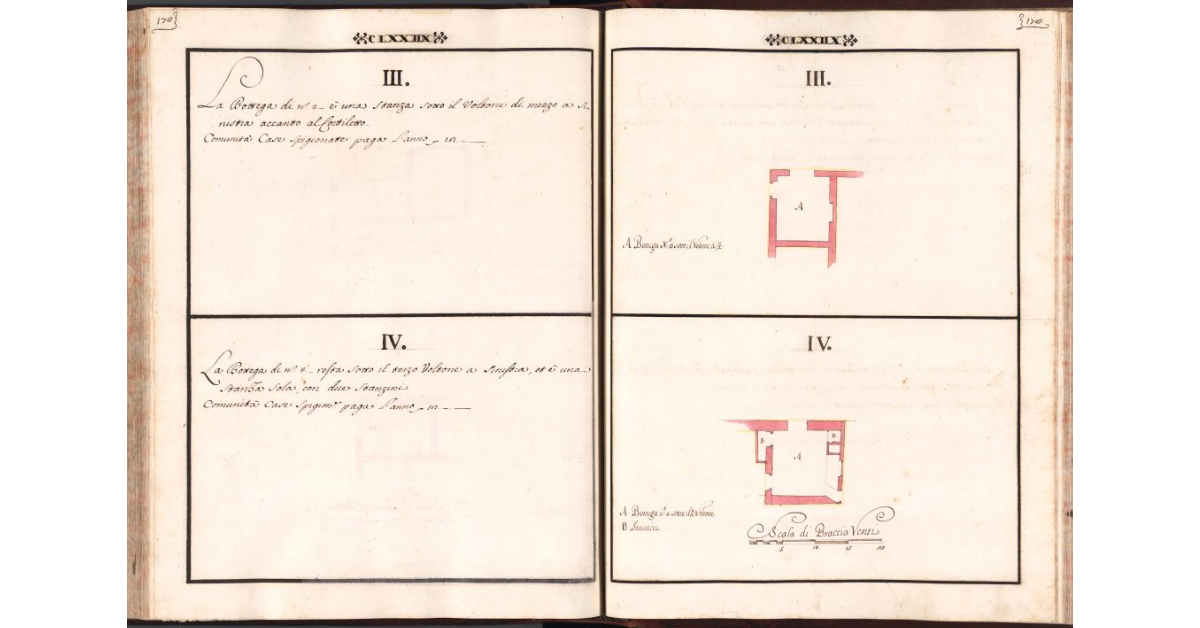 178
CLXXIIX
III.
La Bottega di n.º 2 – è una stanza sotto il Voltone di mezzo a si-
nistra accanto al Cortiletto.
Comunità Case Spigionate paga l'anno
IV.
La Bottega di n.º 4 – resta sotto il terzo Voltone a sinistra, et è una
stanza sola, con due stanzini
Comunità Case Spigion.e paga l'anno
178
CLXXIIX
III.
A
A Bottega N.º sotto il Voltone
IV.
B
B
A
A Bottega sotto Voltone
B Stanzini
Scala di Braccia Venti
5 10 15 20